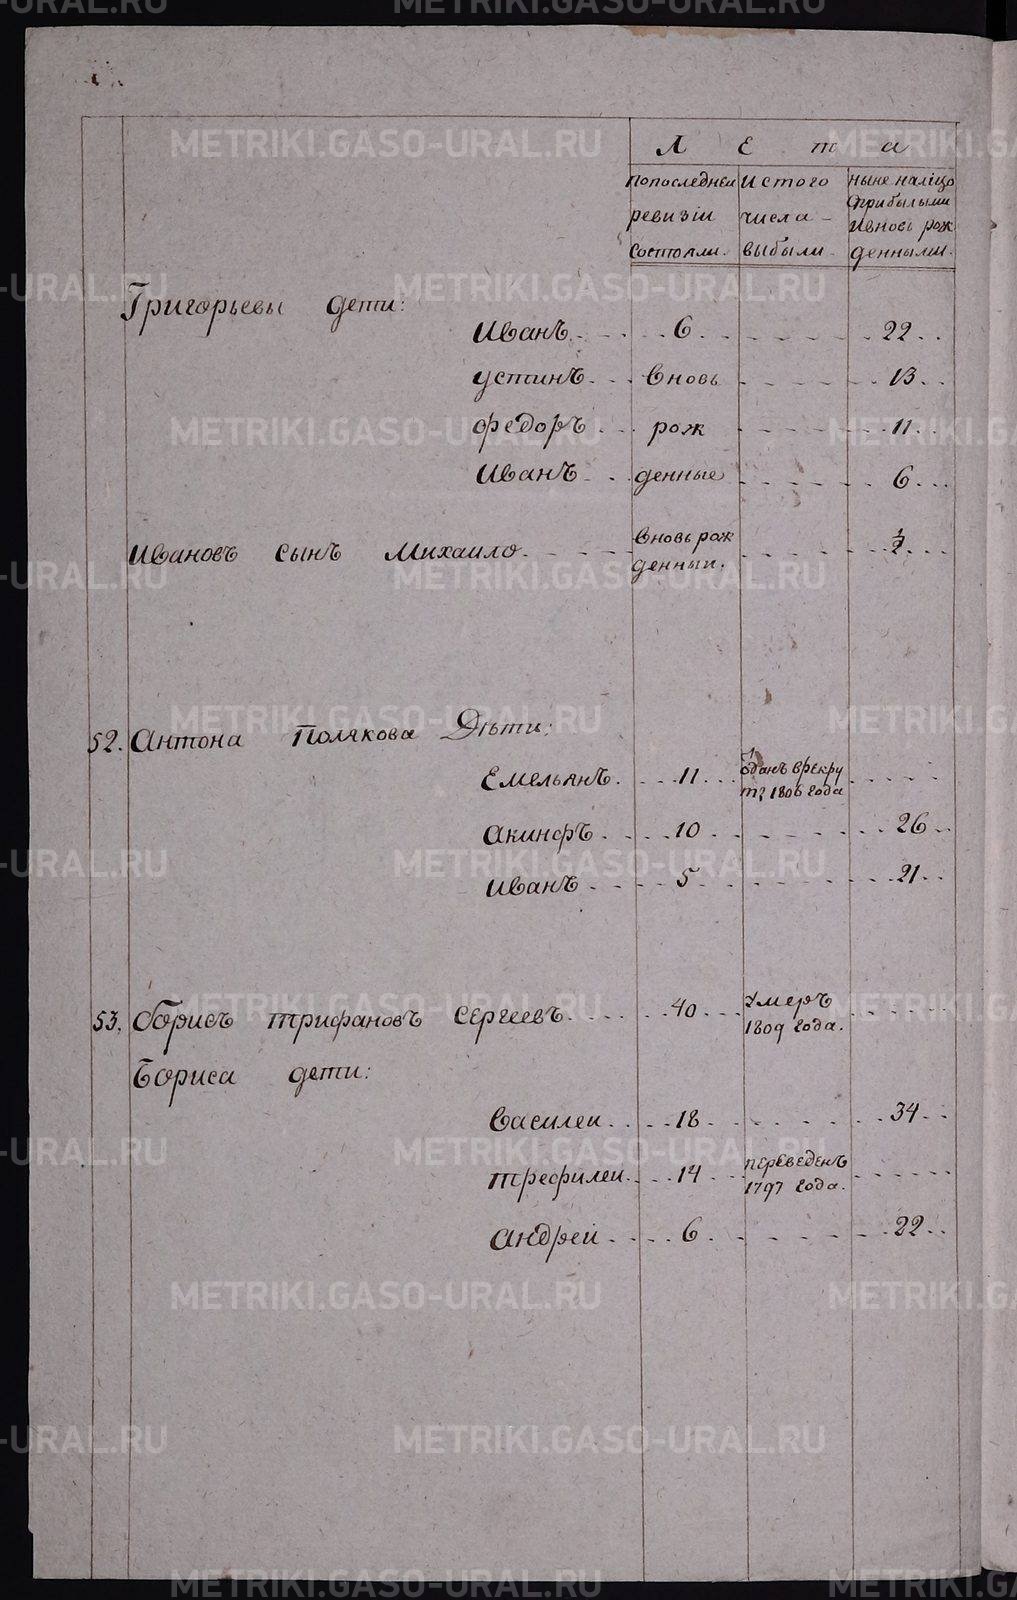 Лета
По последней ревизiи состояли.
И стого числа выбыли.
ныне налiцо с прибылыми и вновь рожденными.
Григорьевы дети:
Иванъ 6 22
устинъ вновь 13
федоръ рож 11
Иванъ денные 6
Ивановъ сынъ Михаило вновь рожденный.
52. Антона Полякова Дѣти:
Емельянъ 11 оданъ врекруты 1806 года
акинфъ 10 26
иванъ 5 21
53. Борисъ трифановъ Сергеевъ 40 умеръ 1809 года.
Бориса дети:
Василеи 18 34
трефилеи 14 переведенъ 1797 года.
андрей 6 22
METRIKI.GASO-URAL.RU